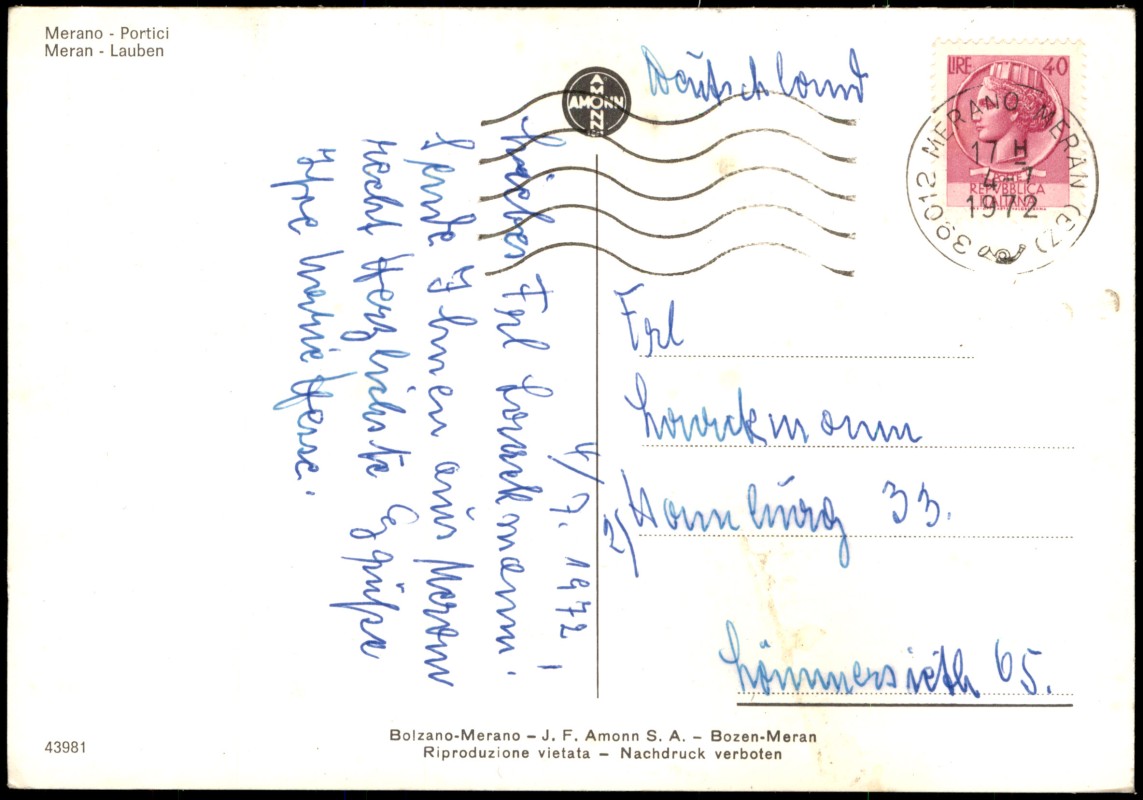 Merano - Portici
Meran - Lauben
AMONN
AMONN
Deutschland
LIRE 40
REPUBBLICA
ITALIANA
39012 MERANO MERAN (BZ)
17 H
4-7
1972
4/7. 1972,
Liebes Frl Lauckmann.
Sende Ihnen aus Meran
recht Herzlichste Grüße
Ihre
Frl
Lauckmann
2/ Hamburg 33.
Lämmersieth 65.
43981
Bolzano-Merano – J. F. Amonn S. A. – Bozen-Meran
Riproduzione vietata – Nachdruck verboten